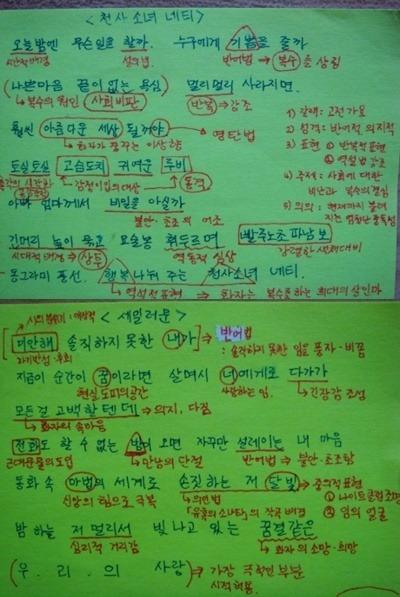 < 천사소녀 네티 >
오늘밤엔 무슨일을 할까. 누구에게 기쁨을 줄까
시간적배경 설의법 반어법 → 복수를 상징
(나쁜마음 끝이없는 욕심) 멀리멀리 사라지면.
↳복수의 원인 사회비판 반복⇒강조
훨씬 아름다운 세상 될꺼야 → 영탄법
↳화자가 꿈꾸는 이상향
1) 갈래 : 고전가요
2) 성격 : 반어적 의지적
3) 표현 ① 반복적표현
② 역설법 강조
4) 주제 : 사회에 대한
비난과 복수의결심
5) 의의 : 현재까지 불려
토실토실 고슴도치 귀여운 루비
↳감정이입의대상 동격
아빠 엄마께서 비밀을 아실까
불안·초조의 어조
긴머리 높이 묶고 요술봉 휘두르며 빨주노초 파남보
시대적배경⇒상투 역동적 심상 강렬한 색채대비
동그라미 풍선. 행복 나눠 주는 천사소녀 네티.
↳역설적표현 ⇒ 화자는 복수를 하는 희대의 살인마
< 세일러문 >
[미안해 솔직하지 못한 내가] ⇒ 반어법
자기반성·후회 : 솔직하지 못한 임을 풍자·비꼼
지금이 순간이 꿈이라면 살며시 너에게로 다가가
현실도피의공간 사랑하는 임. ↳긴장감 조성
모든걸 고백할텐데 ⇒ 의지, 다짐
↳화자의 속마음
전화도 할 수 없는 밤이 오면 자꾸만 설레이는 내 마음
근대문물의도입 만남의 단절 반어법 ⇒ 불안·초조함
동화 속 마법의 세계로 손짓하는 저 달빛 ⇒ 중의적표현
신앙의 힘으로 극복 ↳의인법 ① 나이트클럽조명
② 임의 얼굴
밤 하늘 저 멀리서 빛나고 있는 꿈결같은
심리적 거리감 ↳화자의 소망·희망
(우. 리. 의 사랑) ⇒ 가장 극적인 부분
시적허용.